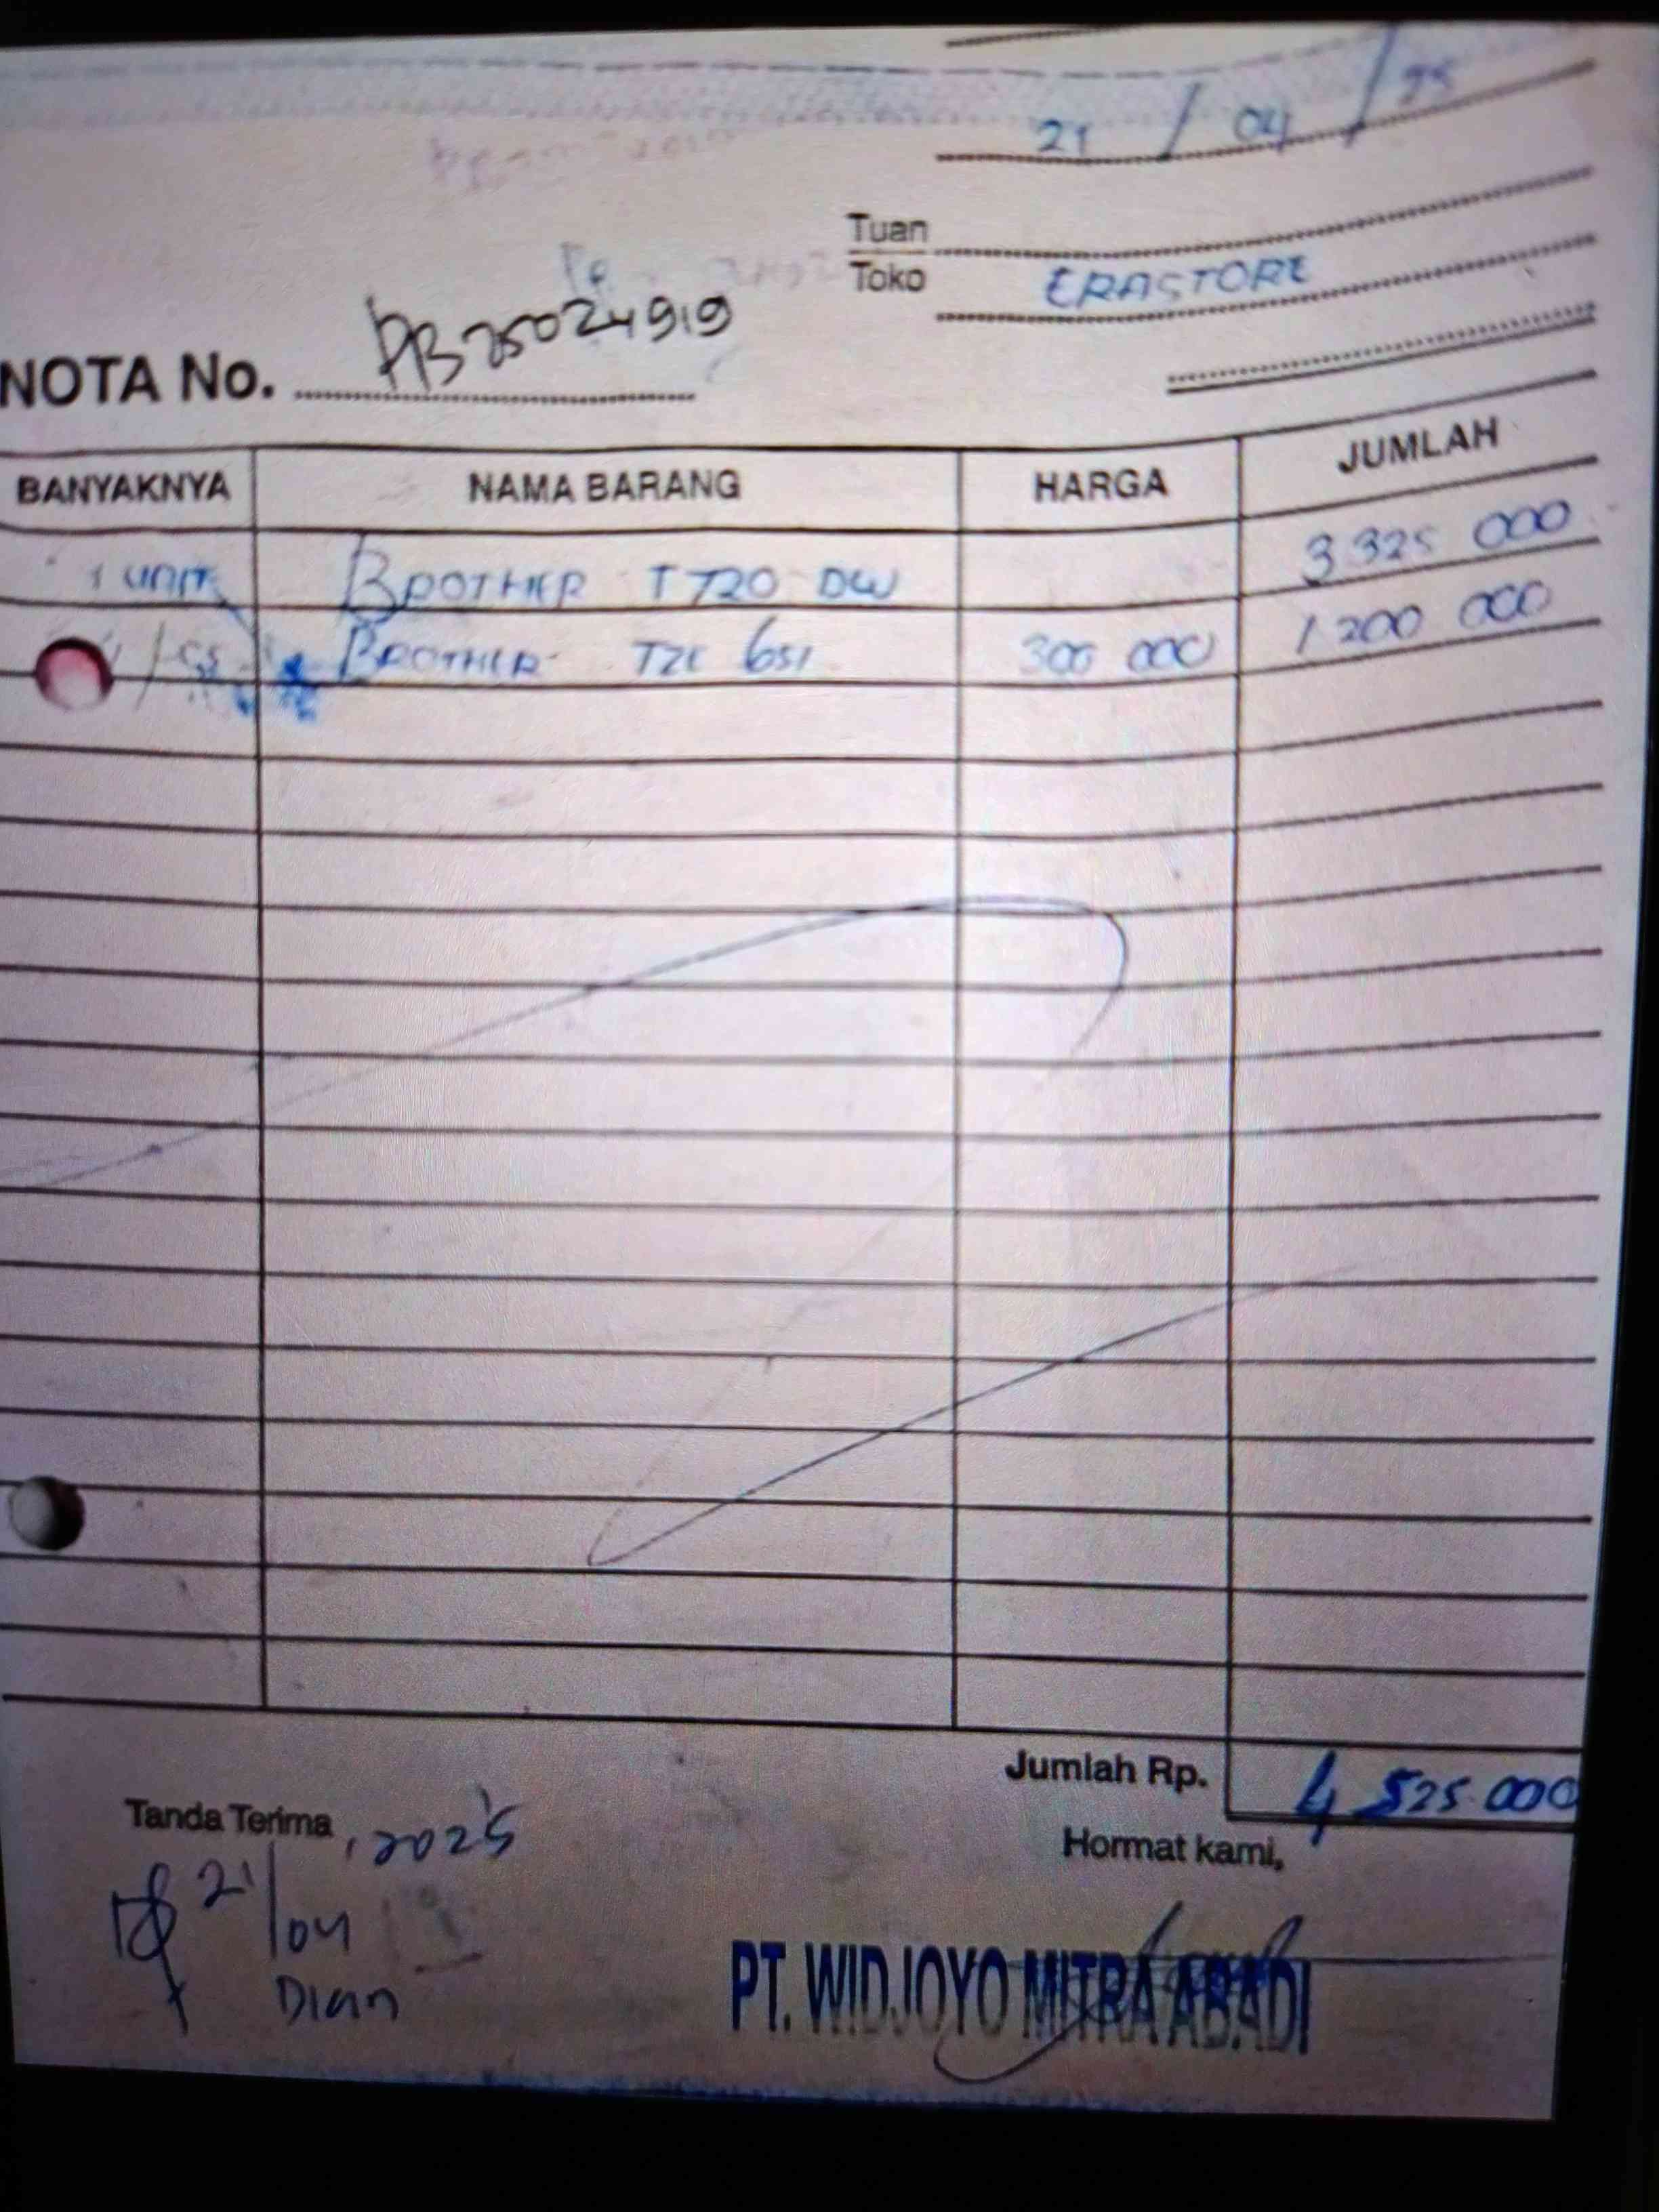 21 / 04 / 25
Tuan
Toko ERASTORE
NOTA No. PB25024919
BANYAKNYA NAMA BARANG HARGA JUMLAH
1 UNIT BROTHER T720 DW 3 325 000
BROTHER TZE 651 300 000 1 200 000
Jumlah Rp. 4 525.000
Tanda Terima , 2025
Hormat kami,
21/04
Dian
PT. WIDJOYO MITRA ABADI